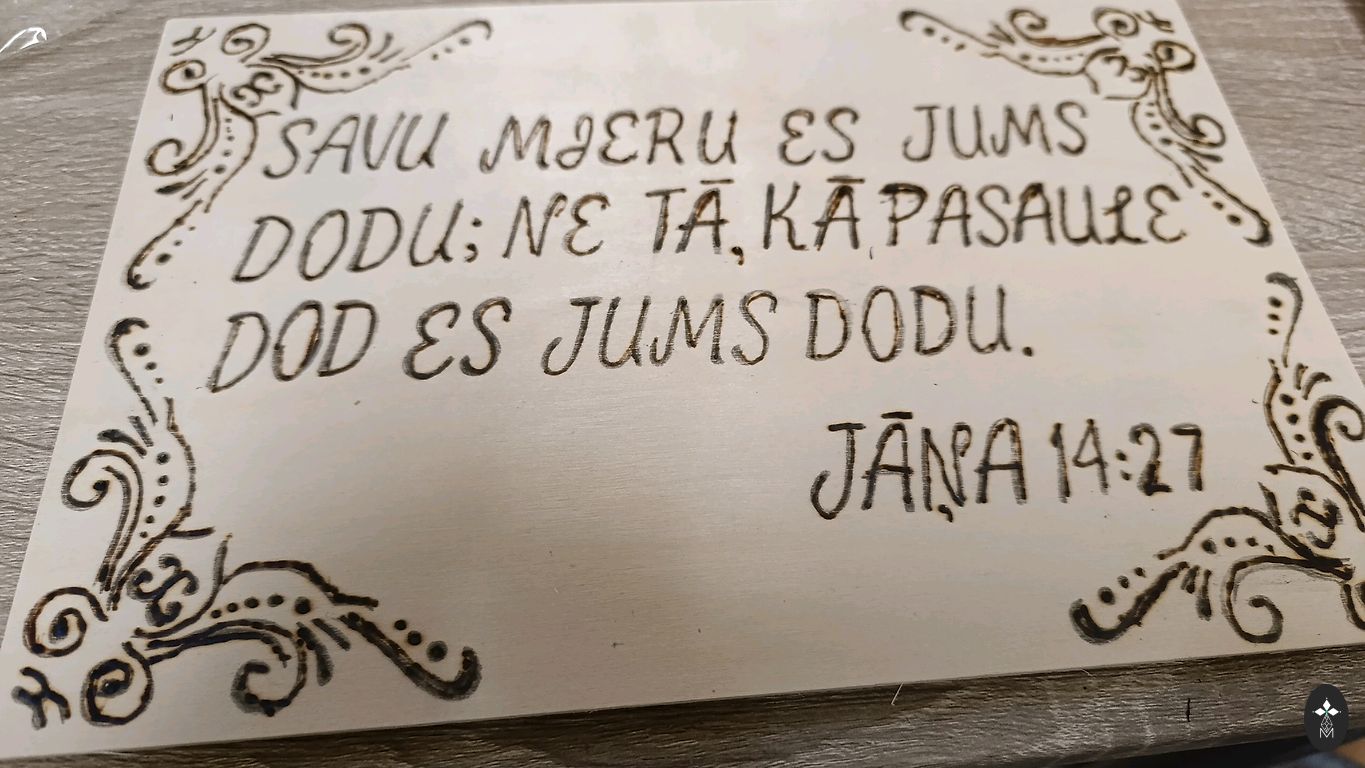 SAVU MIERU ES JUMS
DODU; NE TĀ, KĀ PASAULE
DOD ES JUMS DODU.
JĀŅA 14:27
M